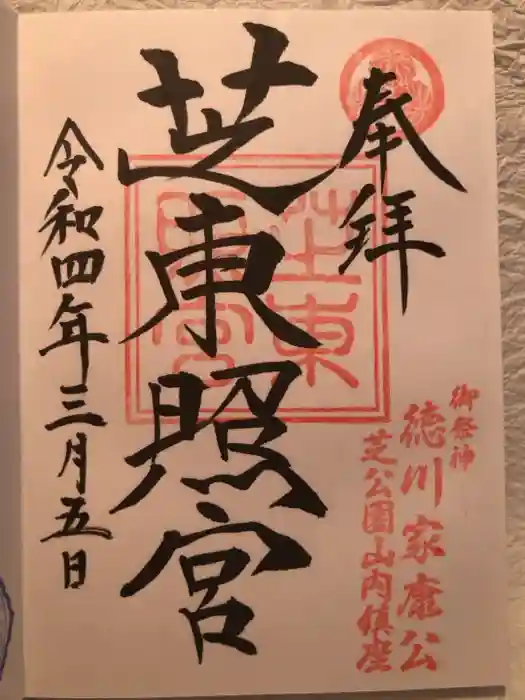 奉拝
御祭神
徳川家康公
芝公園山内鎮座
芝東照宮
芝東
照宮
令和四年三月五日